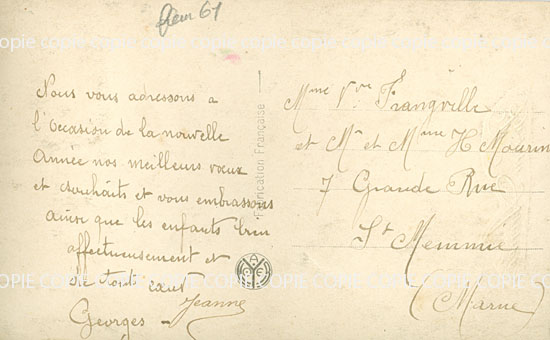 Fleur 61
COPIE COPIE COPIE COPIE COPIE COPIE COPIE COPIE COPIE
Nous vous adressons a
l'Occasion de la nouvelle
Année nos meilleurs vœux
et souhaits et vous embrassons
ainsi que les enfants bien
affectueusement et
de tout cœur
Jeanne
Georges
Fabrication Française
Mme Vve Frangville
et Mr et Mme H Mourin
7 Grande Rue
St Memmie
(Marne)
COPIE COPIE COPIE COPIE COPIE COPIE COPIE COPIE COPIE